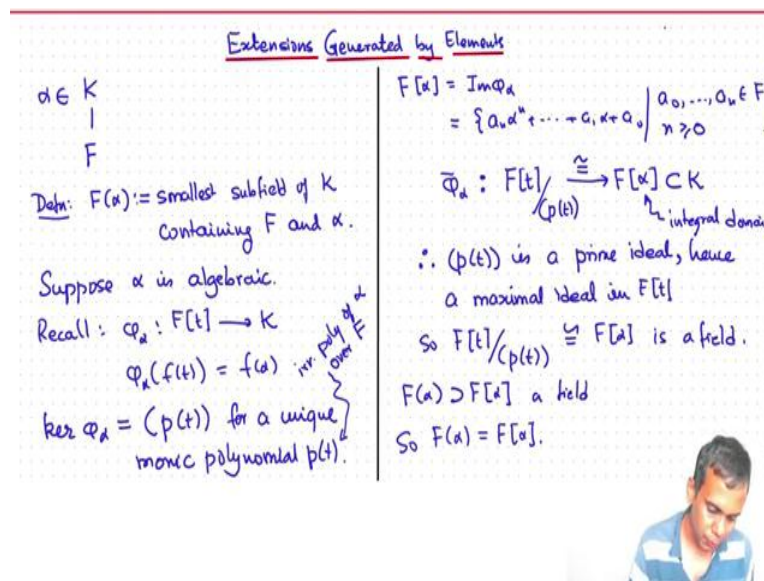 Extensions Generated by Elements
α ∈ K
|
F
Defn: F(α) := smallest subfield of K
containing F and α.
Suppose α is algebraic.
Recall: φ_α : F[t] → K
φ_α(f(t)) = f(α)
irr. poly of α
over F
ker φ_α = (p(t)) for a unique
monic polynomial p(t).
F[α] = Im φ_α
= {a_n α^n + ... + a_1 α + a_0 | a_0, ..., a_n ∈ F
n ≥ 0
φ̄_α : F[t]/(p(t)) ≅→ F[α] ⊂ K
integral domain
∴ (p(t)) is a prime ideal, hence
a maximal ideal in F[t]
So F[t]/(p(t)) ≅ F[α] is a field.
F(α) ⊃ F[α] a field
So F(α) = F[α].